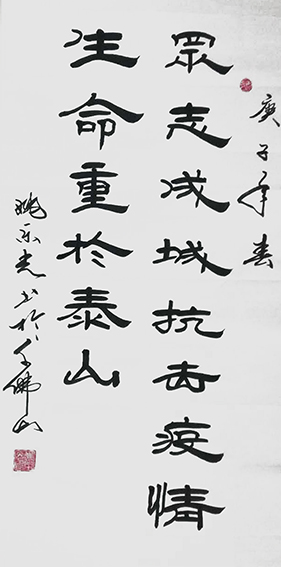 庚子年春
眾志成城抗击疫情
生命重於泰山
姚光书於千佛山